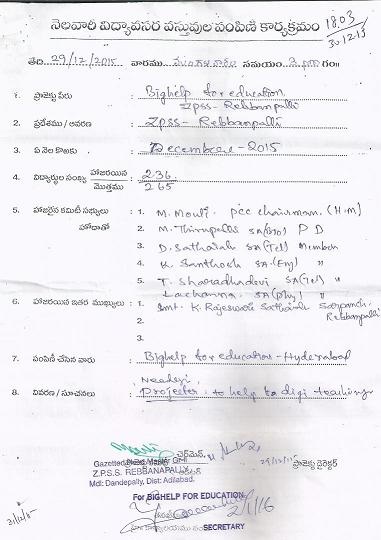 నెలవారి విద్యావసర వస్తువుల పంపిణి కార్యక్రమం
18.03
30.12.15
తేది 29/12/2015 వారము మంగళవారం సమయం 2 pm గం॥
1. ప్రాజెక్టు పేరు : Bighelp for education
ZPSS- Rebbanpalli
2. ప్రదేశము / ఆవరణ : ZPSS- Rebbanpalli
3. ఏ నెల కొఱకు : Decembeer-2015
4. విద్యార్థుల సంఖ్య హాజరయిన : 236
మొత్తము 265
5. హాజరైన కమిటీ సభ్యులు : 1. M. Mouli. pcc chairman. (H.M)
హోదాతో 2. M. Thirupathi SA(Bio) P D
3. D. Sathaiah SA(Tel) Member
4. K. Santhosh SA.(Eng) "
5. T. Sharadhadevi SA(Tel) "
Lachanna. SA(Phy) "
6. హాజరయిన ఇతర ముఖ్యులు : 1. Smt. K. Rajeswari Sathaiah Sarpanch.
Rebbanpalli
2.
3.
7. పంపిణీ చేసిన వారు : Bighelp for education - Hyderabad
8. వివరణ / సూచనలు : Projector. to help to digi teaching
చైర్మెన్,
29/12/15
ప్రాజెక్టు డైరెక్టర్
Gazetted Head Master Gr-II
Z.P.S.S. REBBANAPALLY
Mdl: Dandepally, Dist: Adilabad.
For BIGHELP FOR EDUCATION
2/1/16
31/12/15
SECRETARY